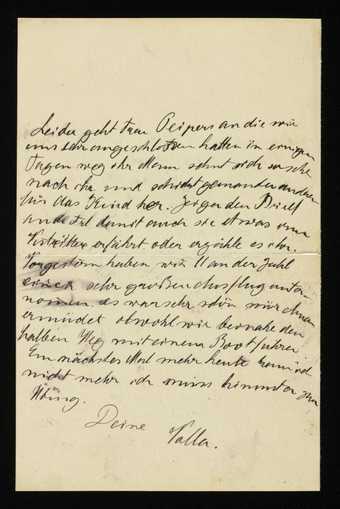 Leider geht Frau Peipers an die wir
uns sehr angeschlossen hatten in einigen
Tagen weg ihr Mann sehnt sich so sehr
nach ihr und schickt jemanden anderen
für das Kind her. Zeige den Brief
und damit auch sie etwas von
erfährt oder erzähle es ihr.
Vorgestern haben wir 11 an der Zahl
einen sehr großen Ausflug unter
nommen es war sehr schön wir
ermüdet obwohl wir beinahe den
halben Weg mit einem Boot fuhren.
Ein nächstes Mal mehr heute kann ich
nicht mehr ich muss hinunter zum
Deine